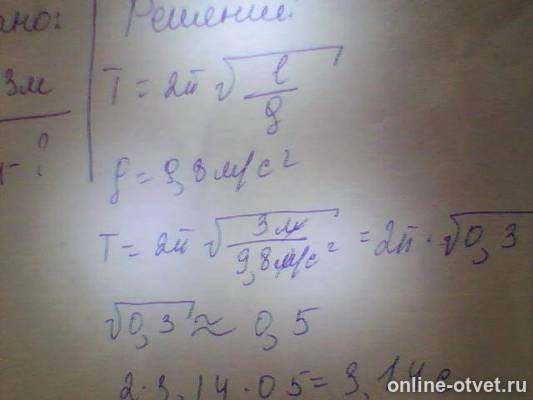 ано: Решение
3м T = 2π √l/g
? g = 9,8 м/с²
T = 2π √3м/9,8м/с² = 2π · √0,3
√0,3 ≈ 0,5
2·3,14·0,5 = 3,14 с
online-otvet.ru